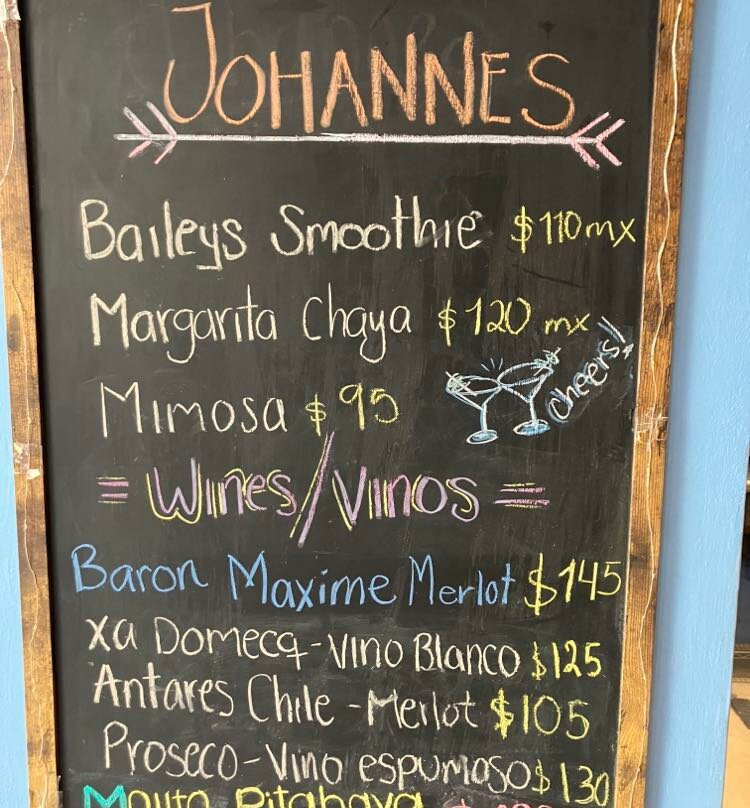 JOHANNES
Baileys Smoothie $110 mx
Margarita Chaya $120 mx
Cheers!
Mimosa $95
= Wines/Vinos =
Baron Maxime Merlot $145
Xa Domecq-Vino Blanco $125
Antares Chile - Merlot $105
Proseco-Vino espumoso $130
Mojito Pitahaya